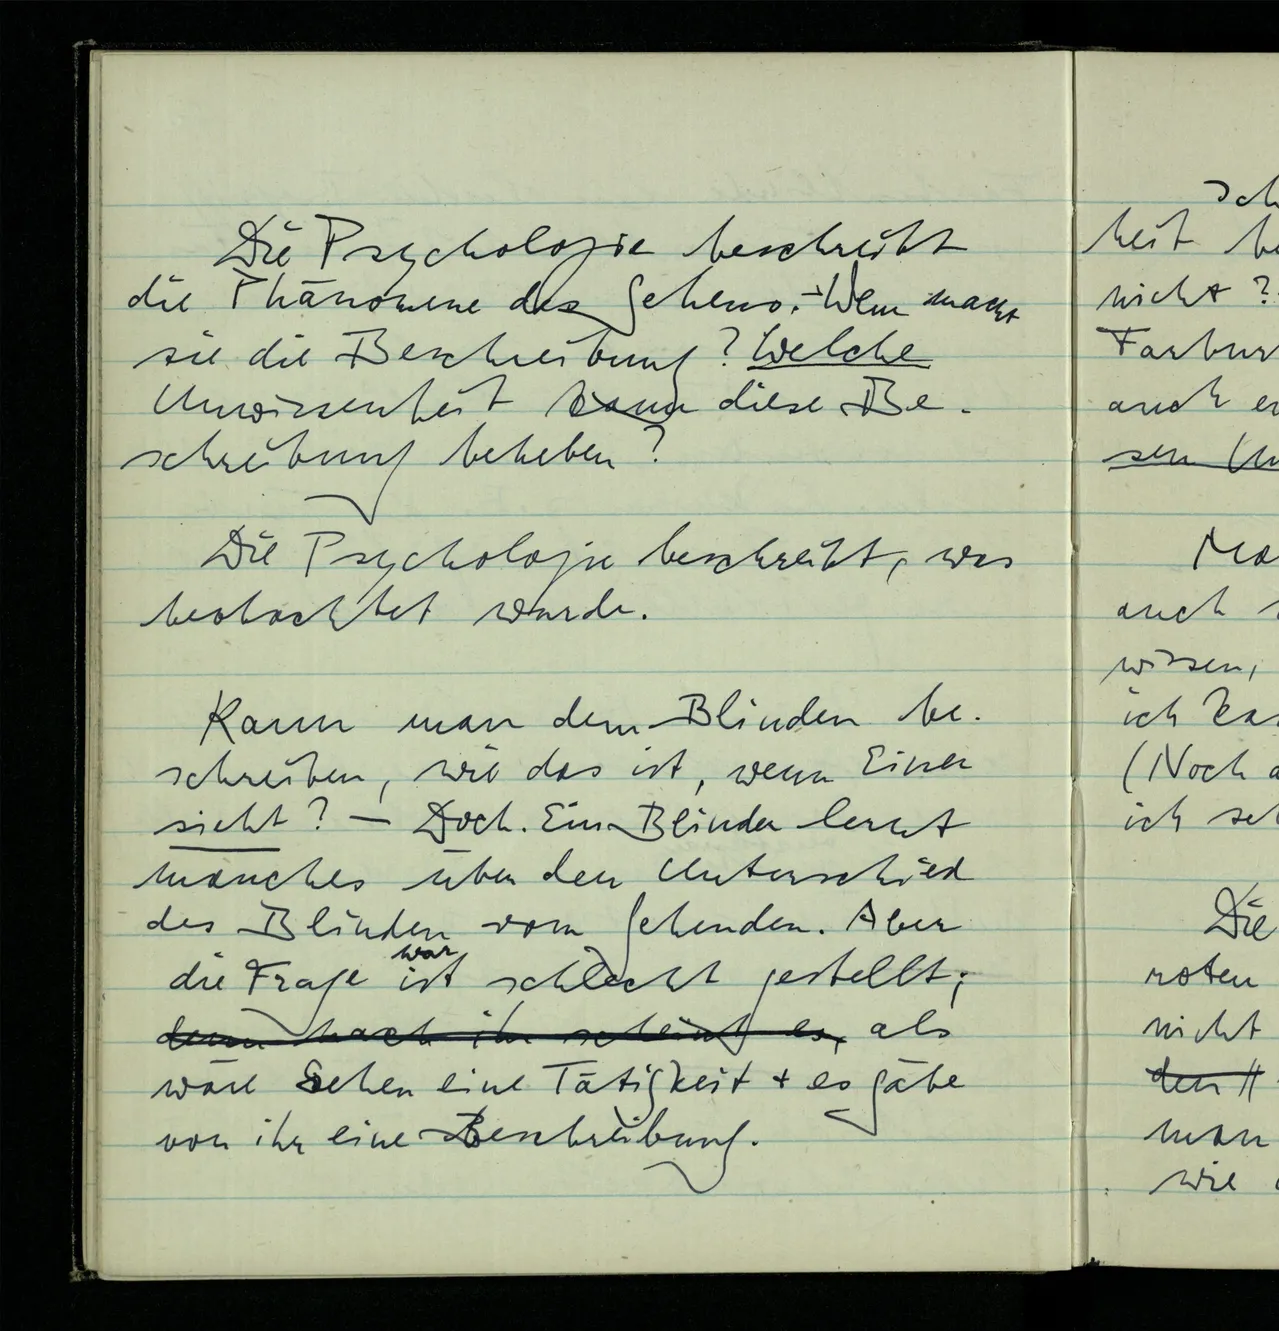 Die Psychologie beschreibt
die Phänomene des Sehens. – Wem macht
sie die Beschreibung? Welche
Unwissenheit kann diese Be-
schreibung beheben?
Die Psychologie beschreibt, was
beobachtet wurde.
Kann man dem Blinden be-
schreiben, wie das ist, wenn Einer
sieht? – Doch. Ein Blinder lernt
manches über den Unterschied
des Blinden vom Sehenden. Aber
war
die Frage ist schlecht gestellt;
denn nach ihr scheint es, als
wäre Sehen eine Tätigkeit + es gäbe
von ihr eine Beschreibung.
Sch
heit be
nicht?
Farbur
auch er
sen Un
Ma
auch
wissen,
ich ka
(Noch a
ich se
Die
roten
nicht
den
man
wie